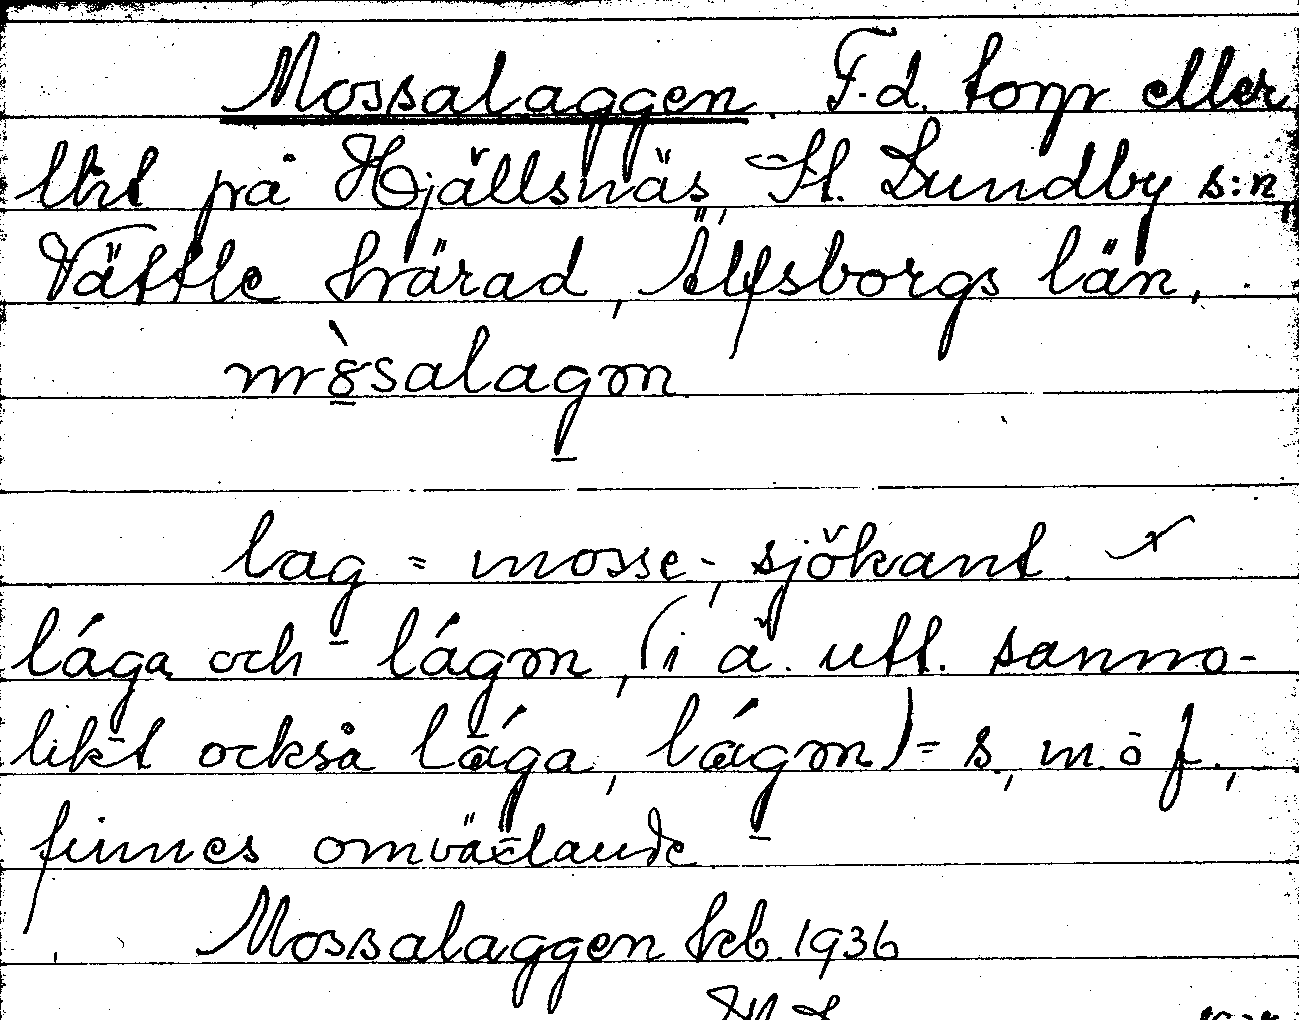 Mossalaggen F.d. torp eller
lht på Hjällsnäs, St. Lundby s:n,
Vättle härad, Älfsborgs län.
lag = mosse-, sjökant
lága och lágən, (i ä. utt. sanno-
likt också lǽga, lǽgən) = s, m. o f.,
finnes omväxlande
Mossalaggen kb. 1936